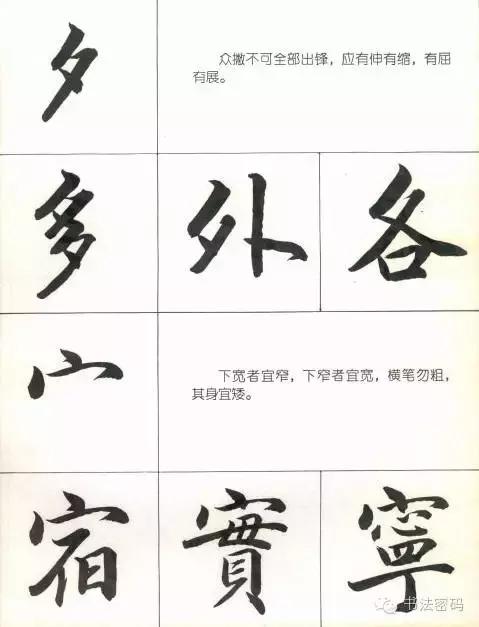 夕
众撇不可全部出锋，应有伸有缩，有屈
有展。
多 外 各
宀
下宽者宜窄，下窄者宜宽，横笔勿粗，
其身宜矮。
宿 實 寧
书法密码